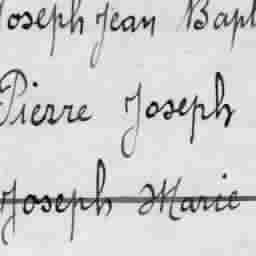 Joseph Jean Bapt
Pierre Joseph
Joseph Marie